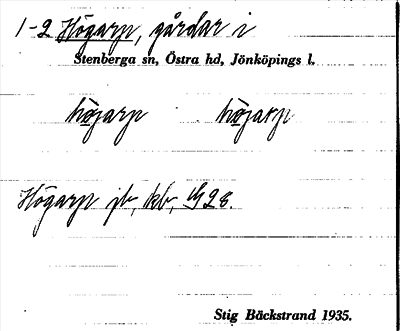 1-2 Högarp, gårdar i
Stenberga sn, Östra hd, Jönköpings l.
högarp högarp
Högarp jb, kb, G 28.
Stig Bäckstrand 1935.